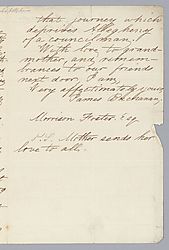 that journey which
deprives Allegheny
of a councilman!
With love to grand-
mother, and remem-
brances to our friends
next door, I am,
Very affectionately yours,
James Buchanan.
Morrison Foster, Esq
P.S. Mother sends her
love to all.